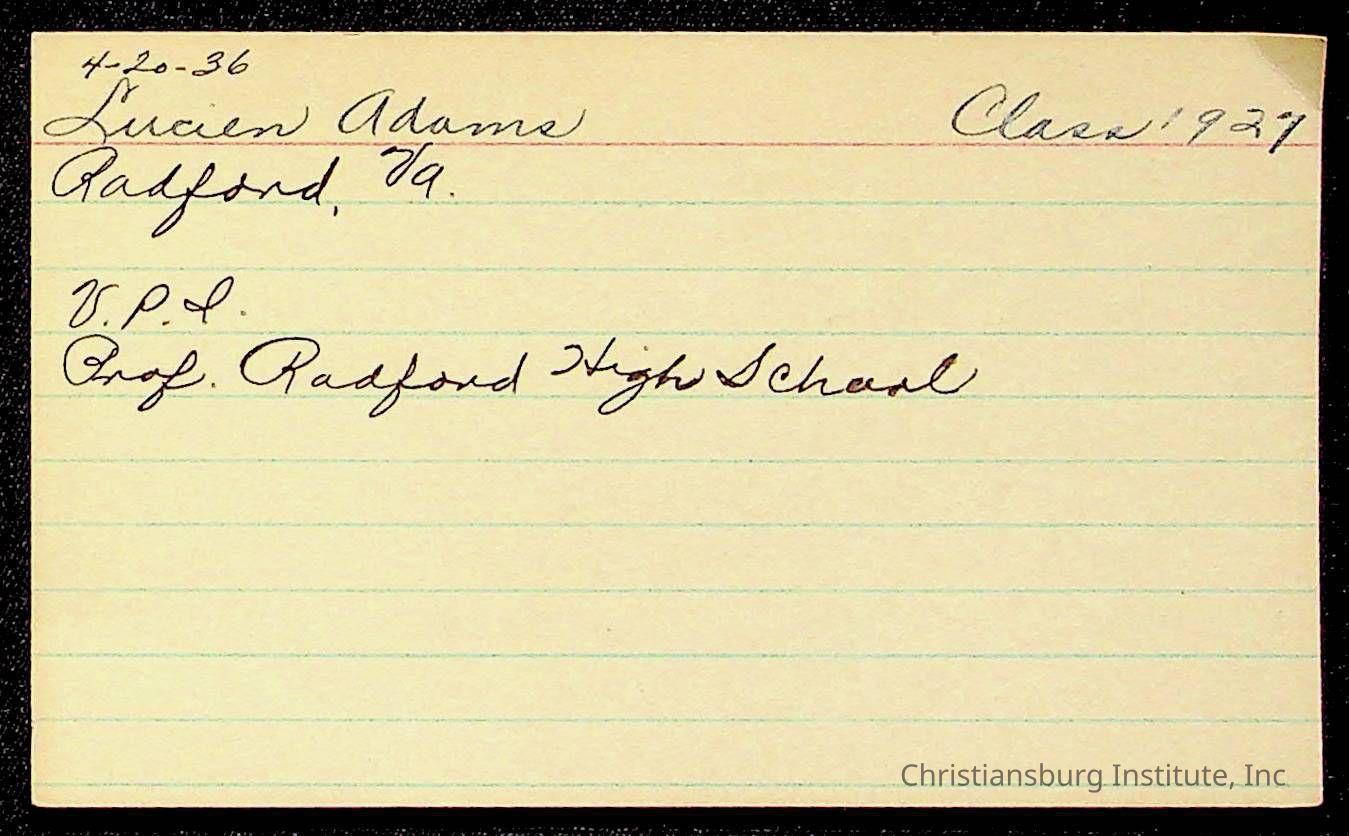 4-20-36
Lucien Adams Class 1927
Radford, Va.
V.P.I.
Prof. Radford High School
Christiansburg Institute, Inc